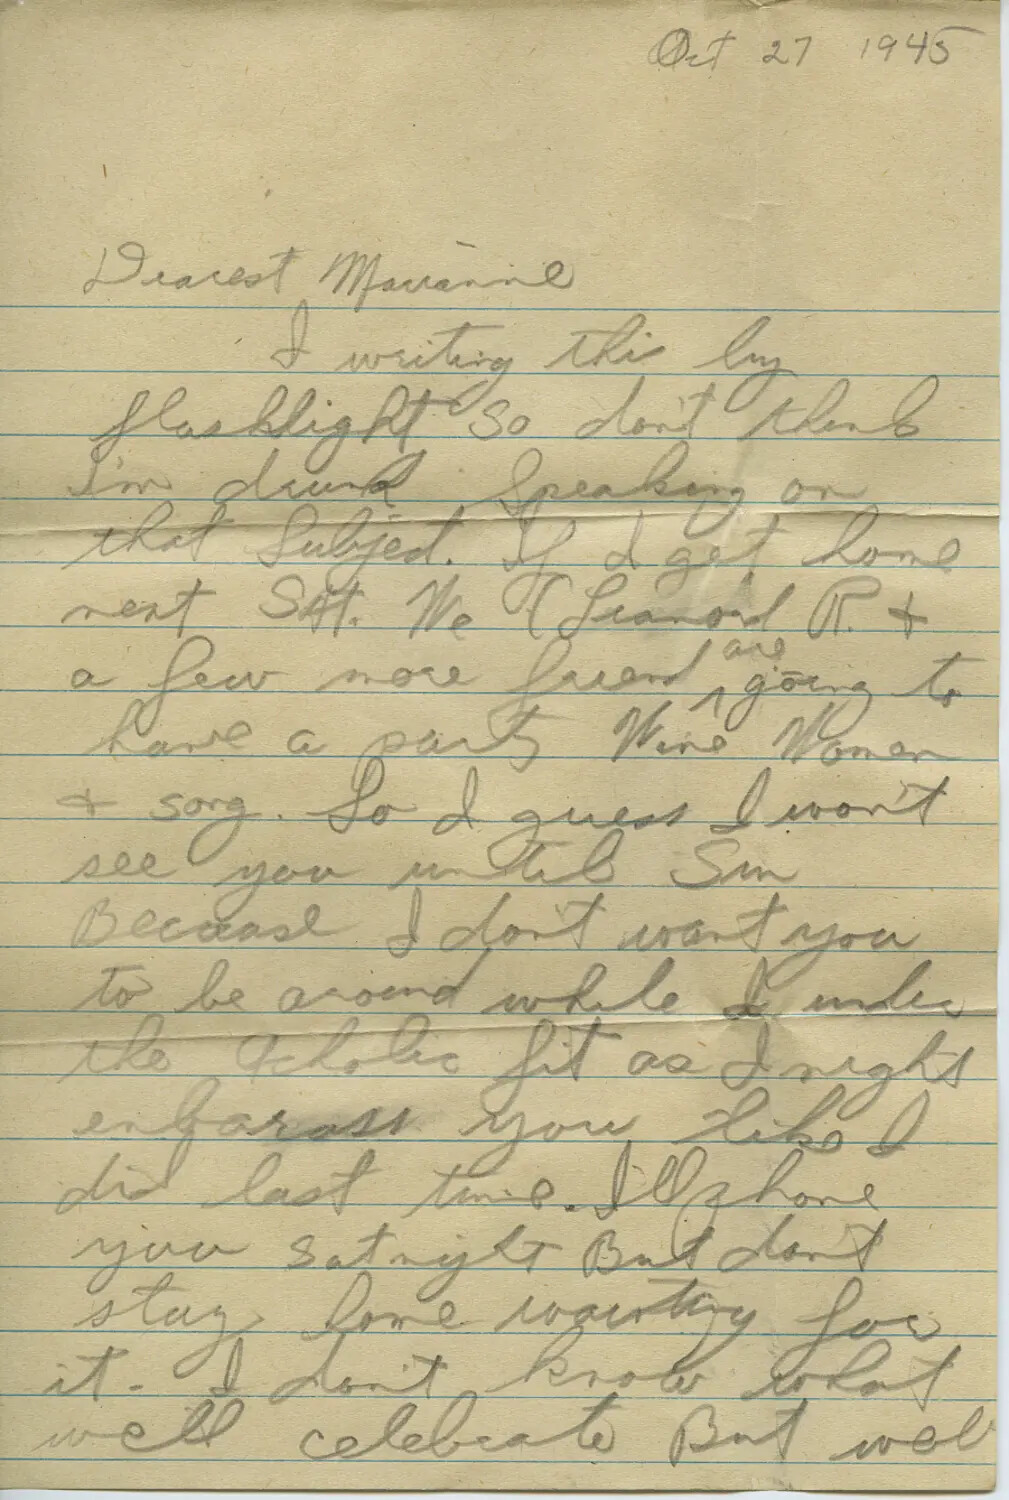 Oct 27 1945
Dearest Marianne
I writing this by
flashlight so don't think
I'm drunk Speaking on
that Subject. If I get home
next SAt. We (Leanord R. +
a few more friend are going to
have a party Wine Women
+ song. So I guess I won't
see you until Sun
Because I don't want you
to be around while I under
the Acholic fit as I might
embarass you like I
did last time. I'll phone
you Sat night But don't
stay home waiting for
it - I don't know what
we'll celebrate But we'll